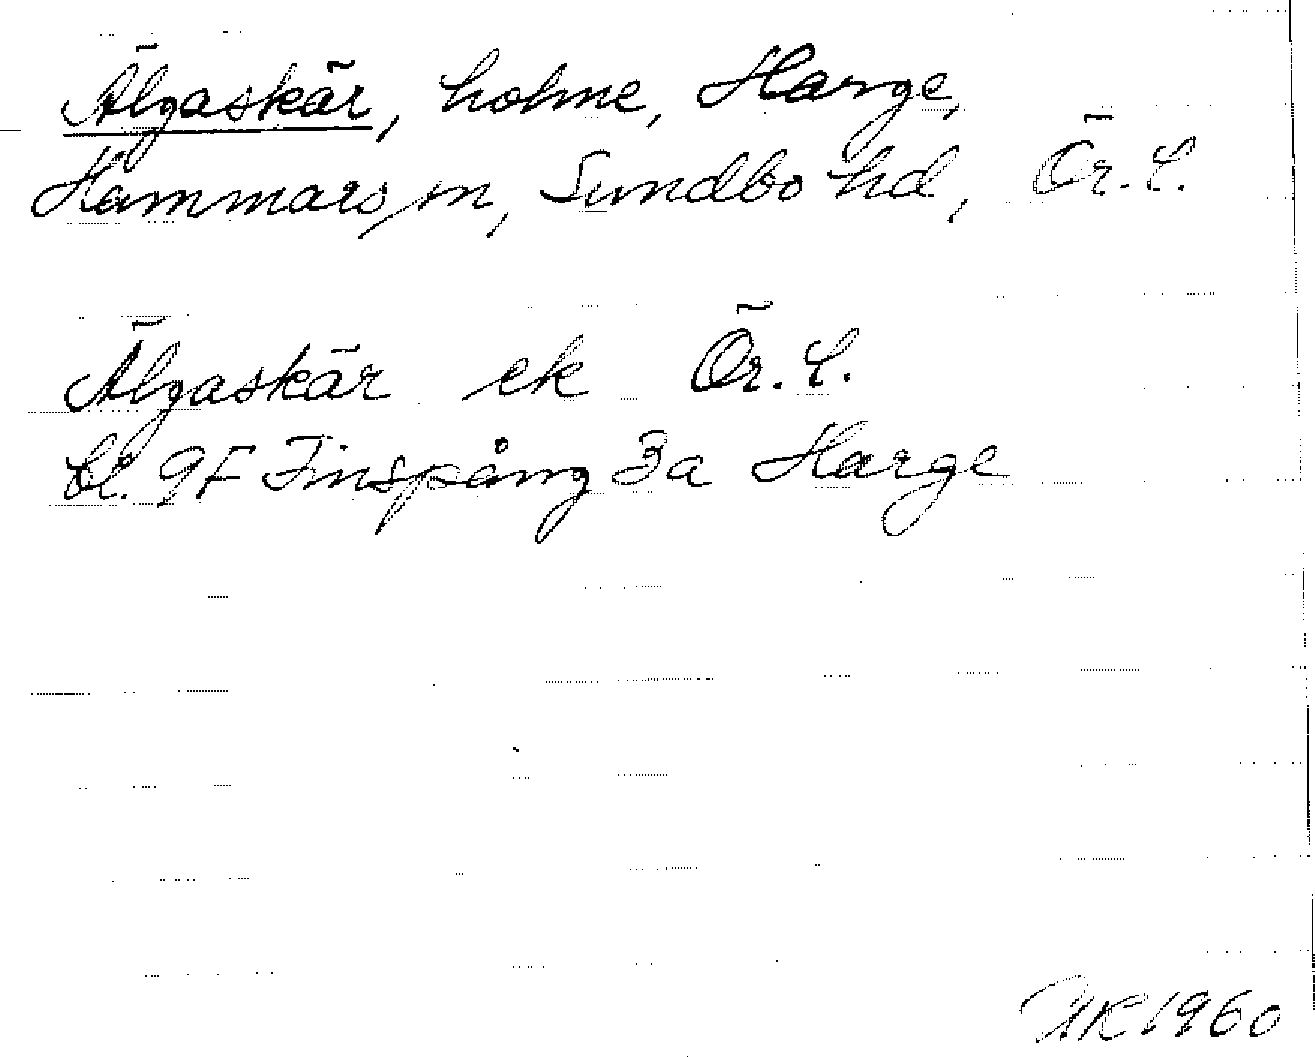 Älgaskär, holme, Harge,
Hammars sn, Sundbo hd, Ör. l.
Älgaskär ek Ör. l.
bl. 9F Finspång 3a Harge
1960